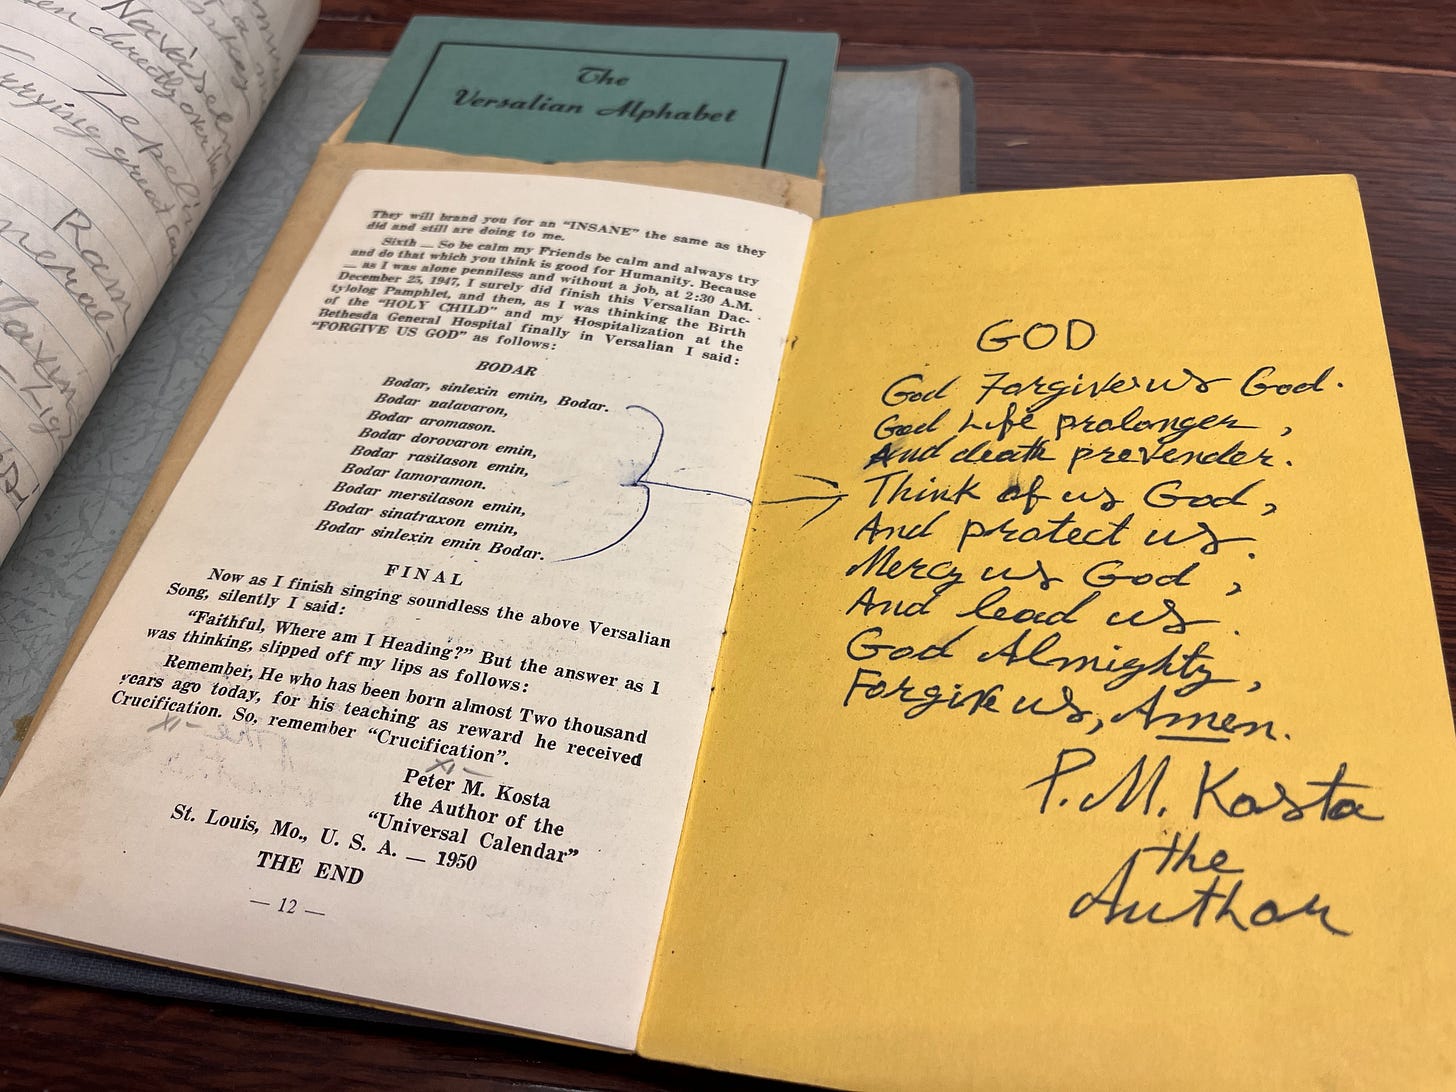 Zepelin
The
Versalian Alphabet
They will brand you for an "INSANE" the same as they
did and still are doing to me.
Sixth — So be calm my Friends be calm and always try
and do that which you think is good for Humanity. Because
— as I was alone penniless and without a job, at 2:30 A.M.
December 25, 1947, I surely did finish this Versalian Dac-
tylolog Pamphlet, and then, as I was thinking the Birth
of the "HOLY CHILD" and my Hospitalization at the
Bethesda General Hospital finally in Versalian I said:
"FORGIVE US GOD" as follows:
BODAR
Bodar, sinlexin emin, Bodar.
Bodar nalavaron,
Bodar aromason.
Bodar dorovaron emin,
Bodar rasilason emin,
Bodar lamoramon.
Bodar mersilason emin,
Bodar sinatraxon emin,
Bodar sinlexin emin Bodar.
FINAL
Now as I finish singing soundless the above Versalian
Song, silently I said:
"Faithful, Where am I Heading?" But the answer as I
was thinking, slipped off my lips as follows:
Remember, He who has been born almost Two thousand
years ago today, for his teaching as reward he received
Crucification. So, remember "Crucification".
Peter M. Kosta
the Author of the
"Universal Calendar"
St. Louis, Mo., U. S. A. — 1950
THE END
— 12 —
GOD
God Forgive us God.
God Life prolonger,
And death prevender.
Think of us God,
And protect us.
Mercy us God,
And lead us.
God Almighty,
Forgive us, Amen.
P. M. Kosta
the
Author